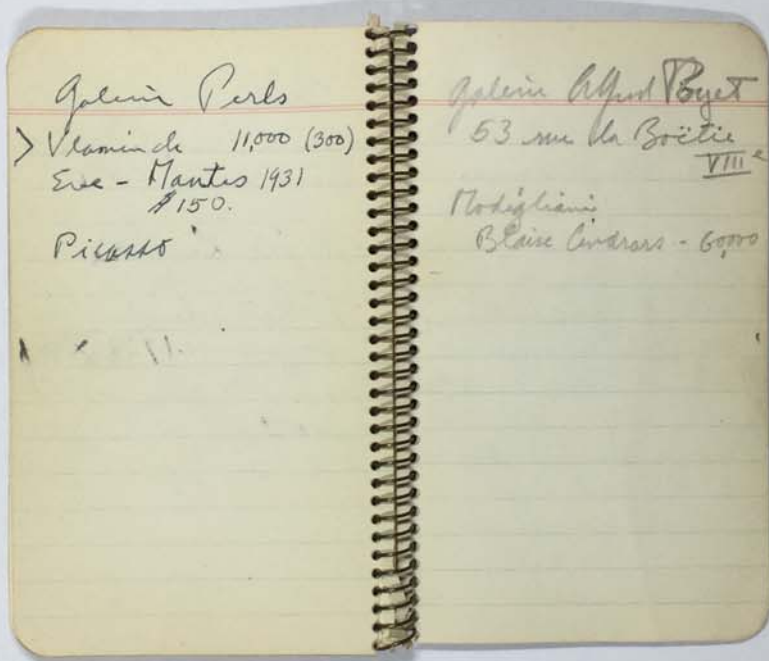 Galerie Perls
> Vlaminck 11,000 (300)
- Mantes 1931
$150.
Picasso
Galerie Alfred Poyet
53 rue la Boëtie
VIIIe
Modigliani
Blaise Cendrars - 60,000